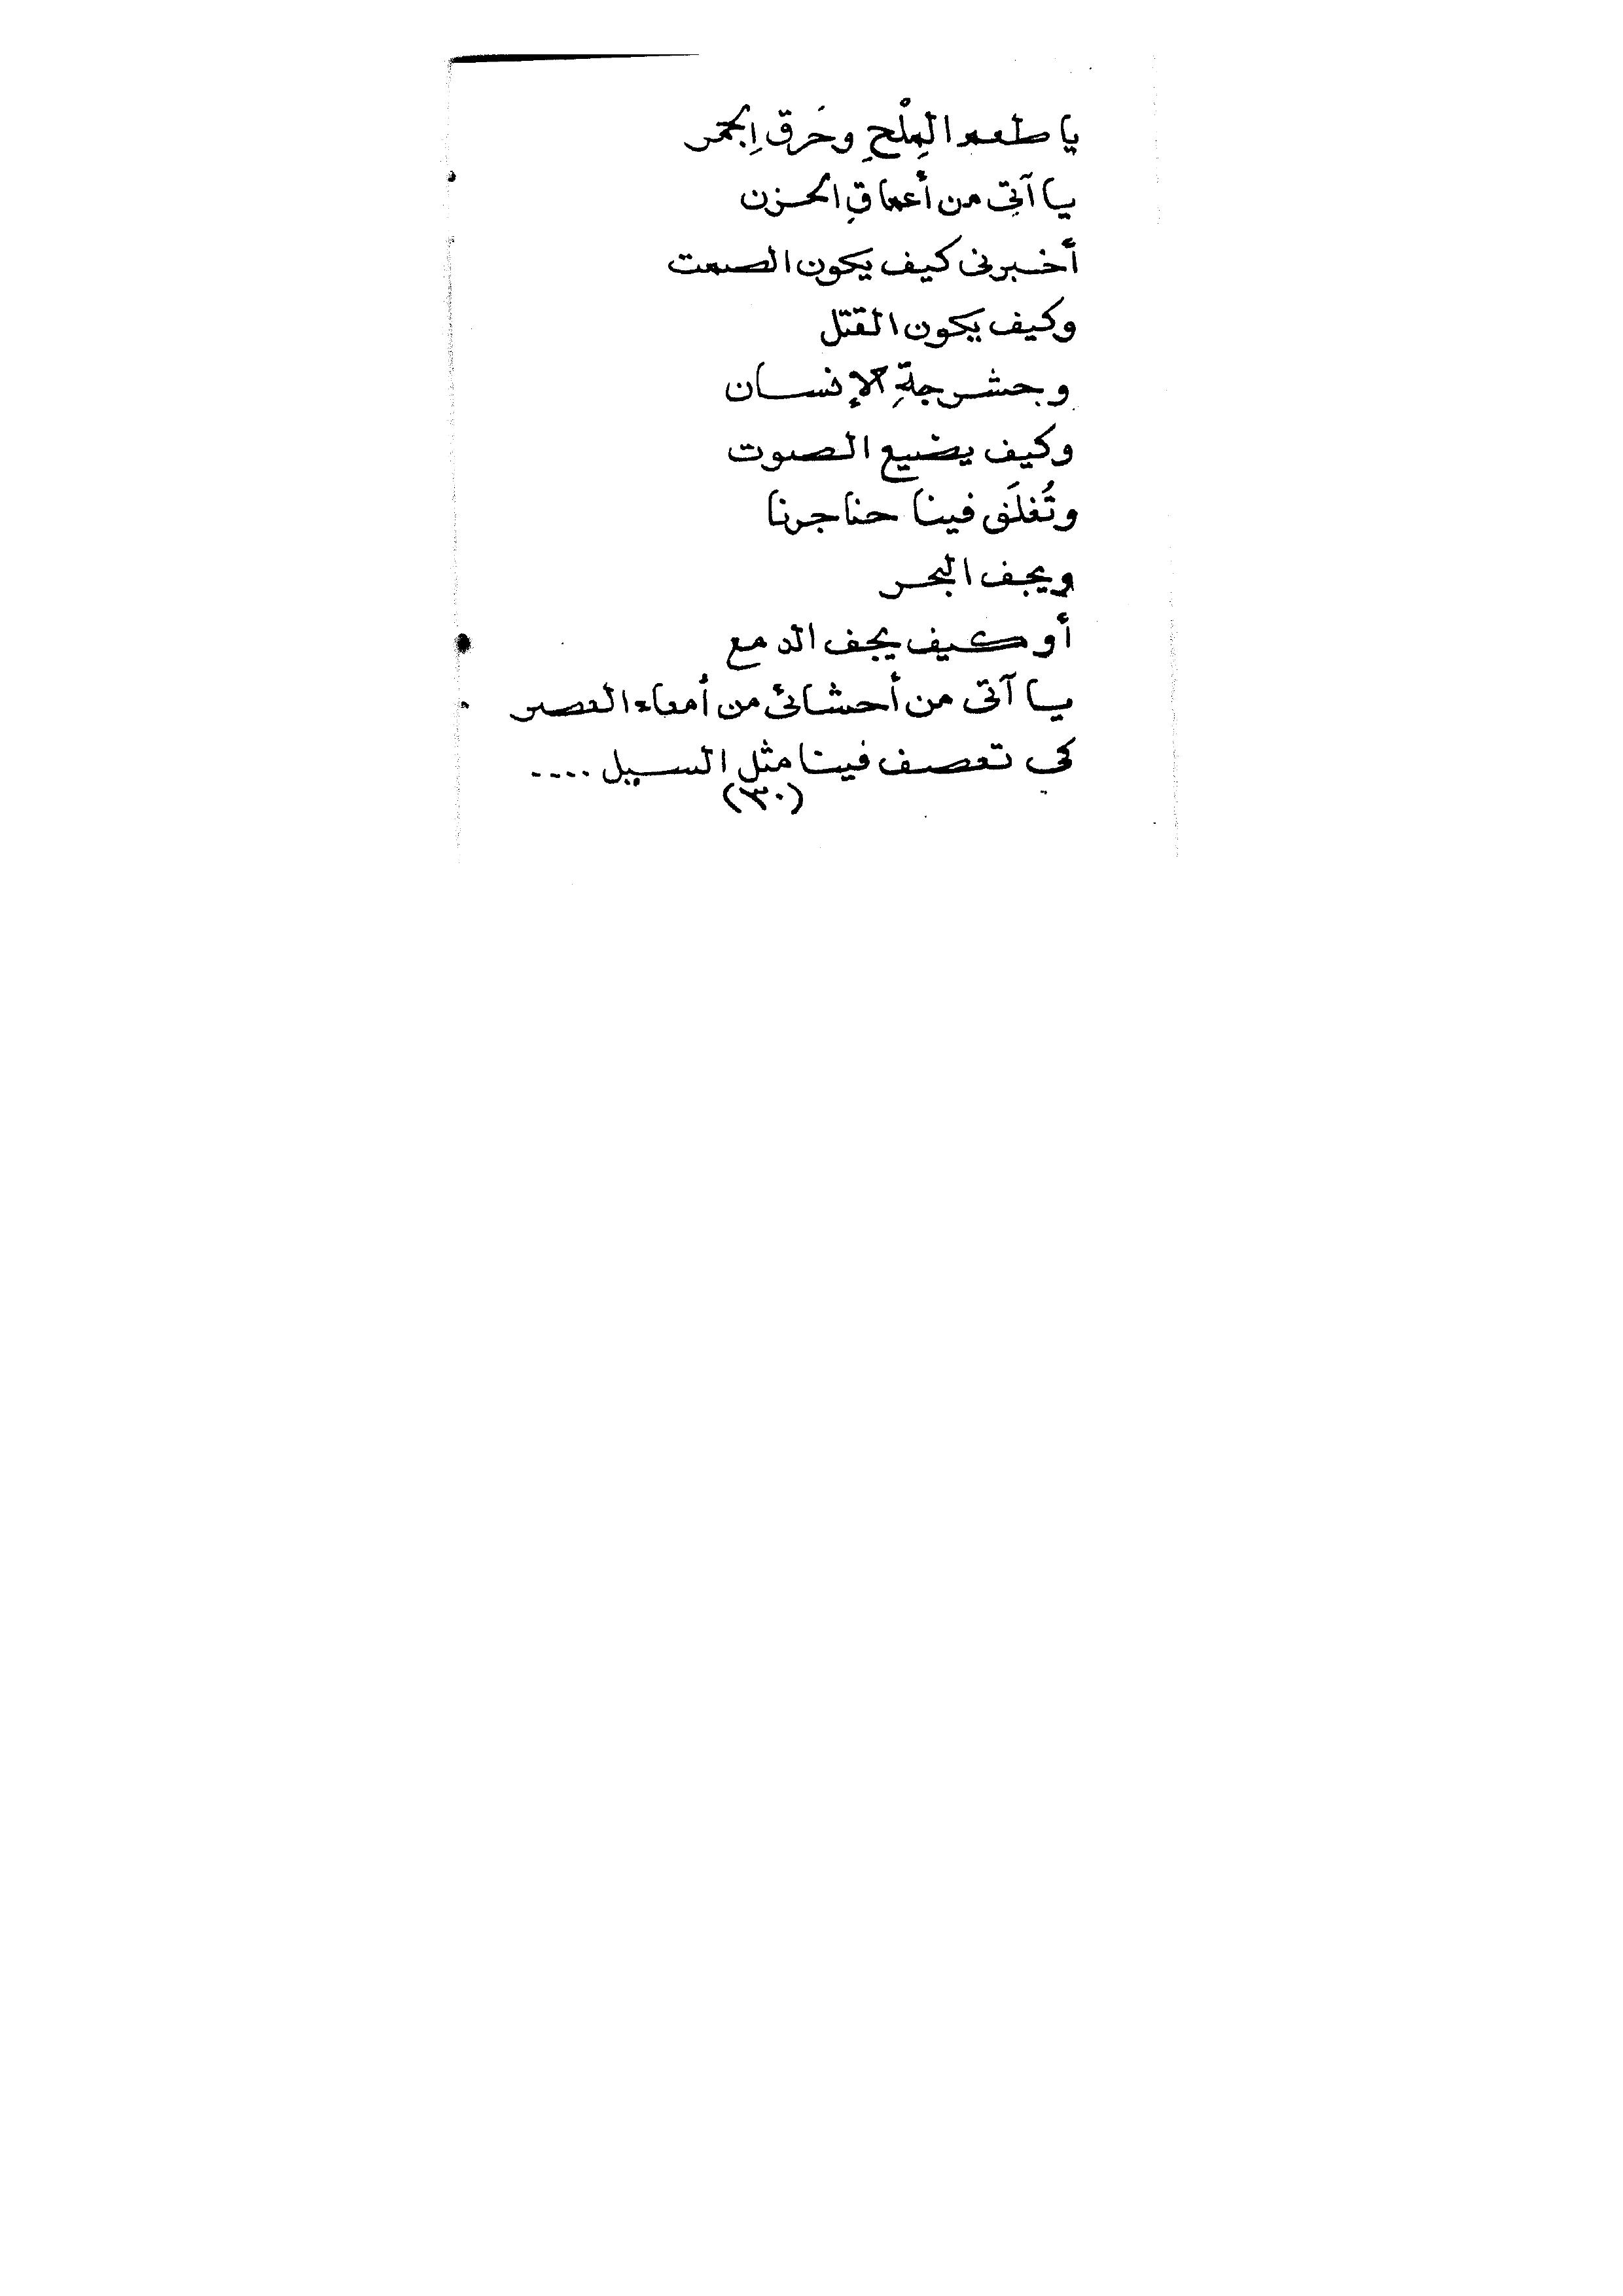 يا طعم المِلْحِ وحَرقِ الجمر
يا آتِى من أعماقِ الحزن
أخبرنى كيف يكون الصمت
وكيف يكون القتل
وحشرجةِ الإنسان
وكيف يضيع الصوت
وتُغلَق فينا حناجرنا
ويجف البحر
أو كيف يجف الدمع
يا آتى من أحشائى من أمعاء العصر
كى تعصف فينا مثل السيل ....
(٣٠)